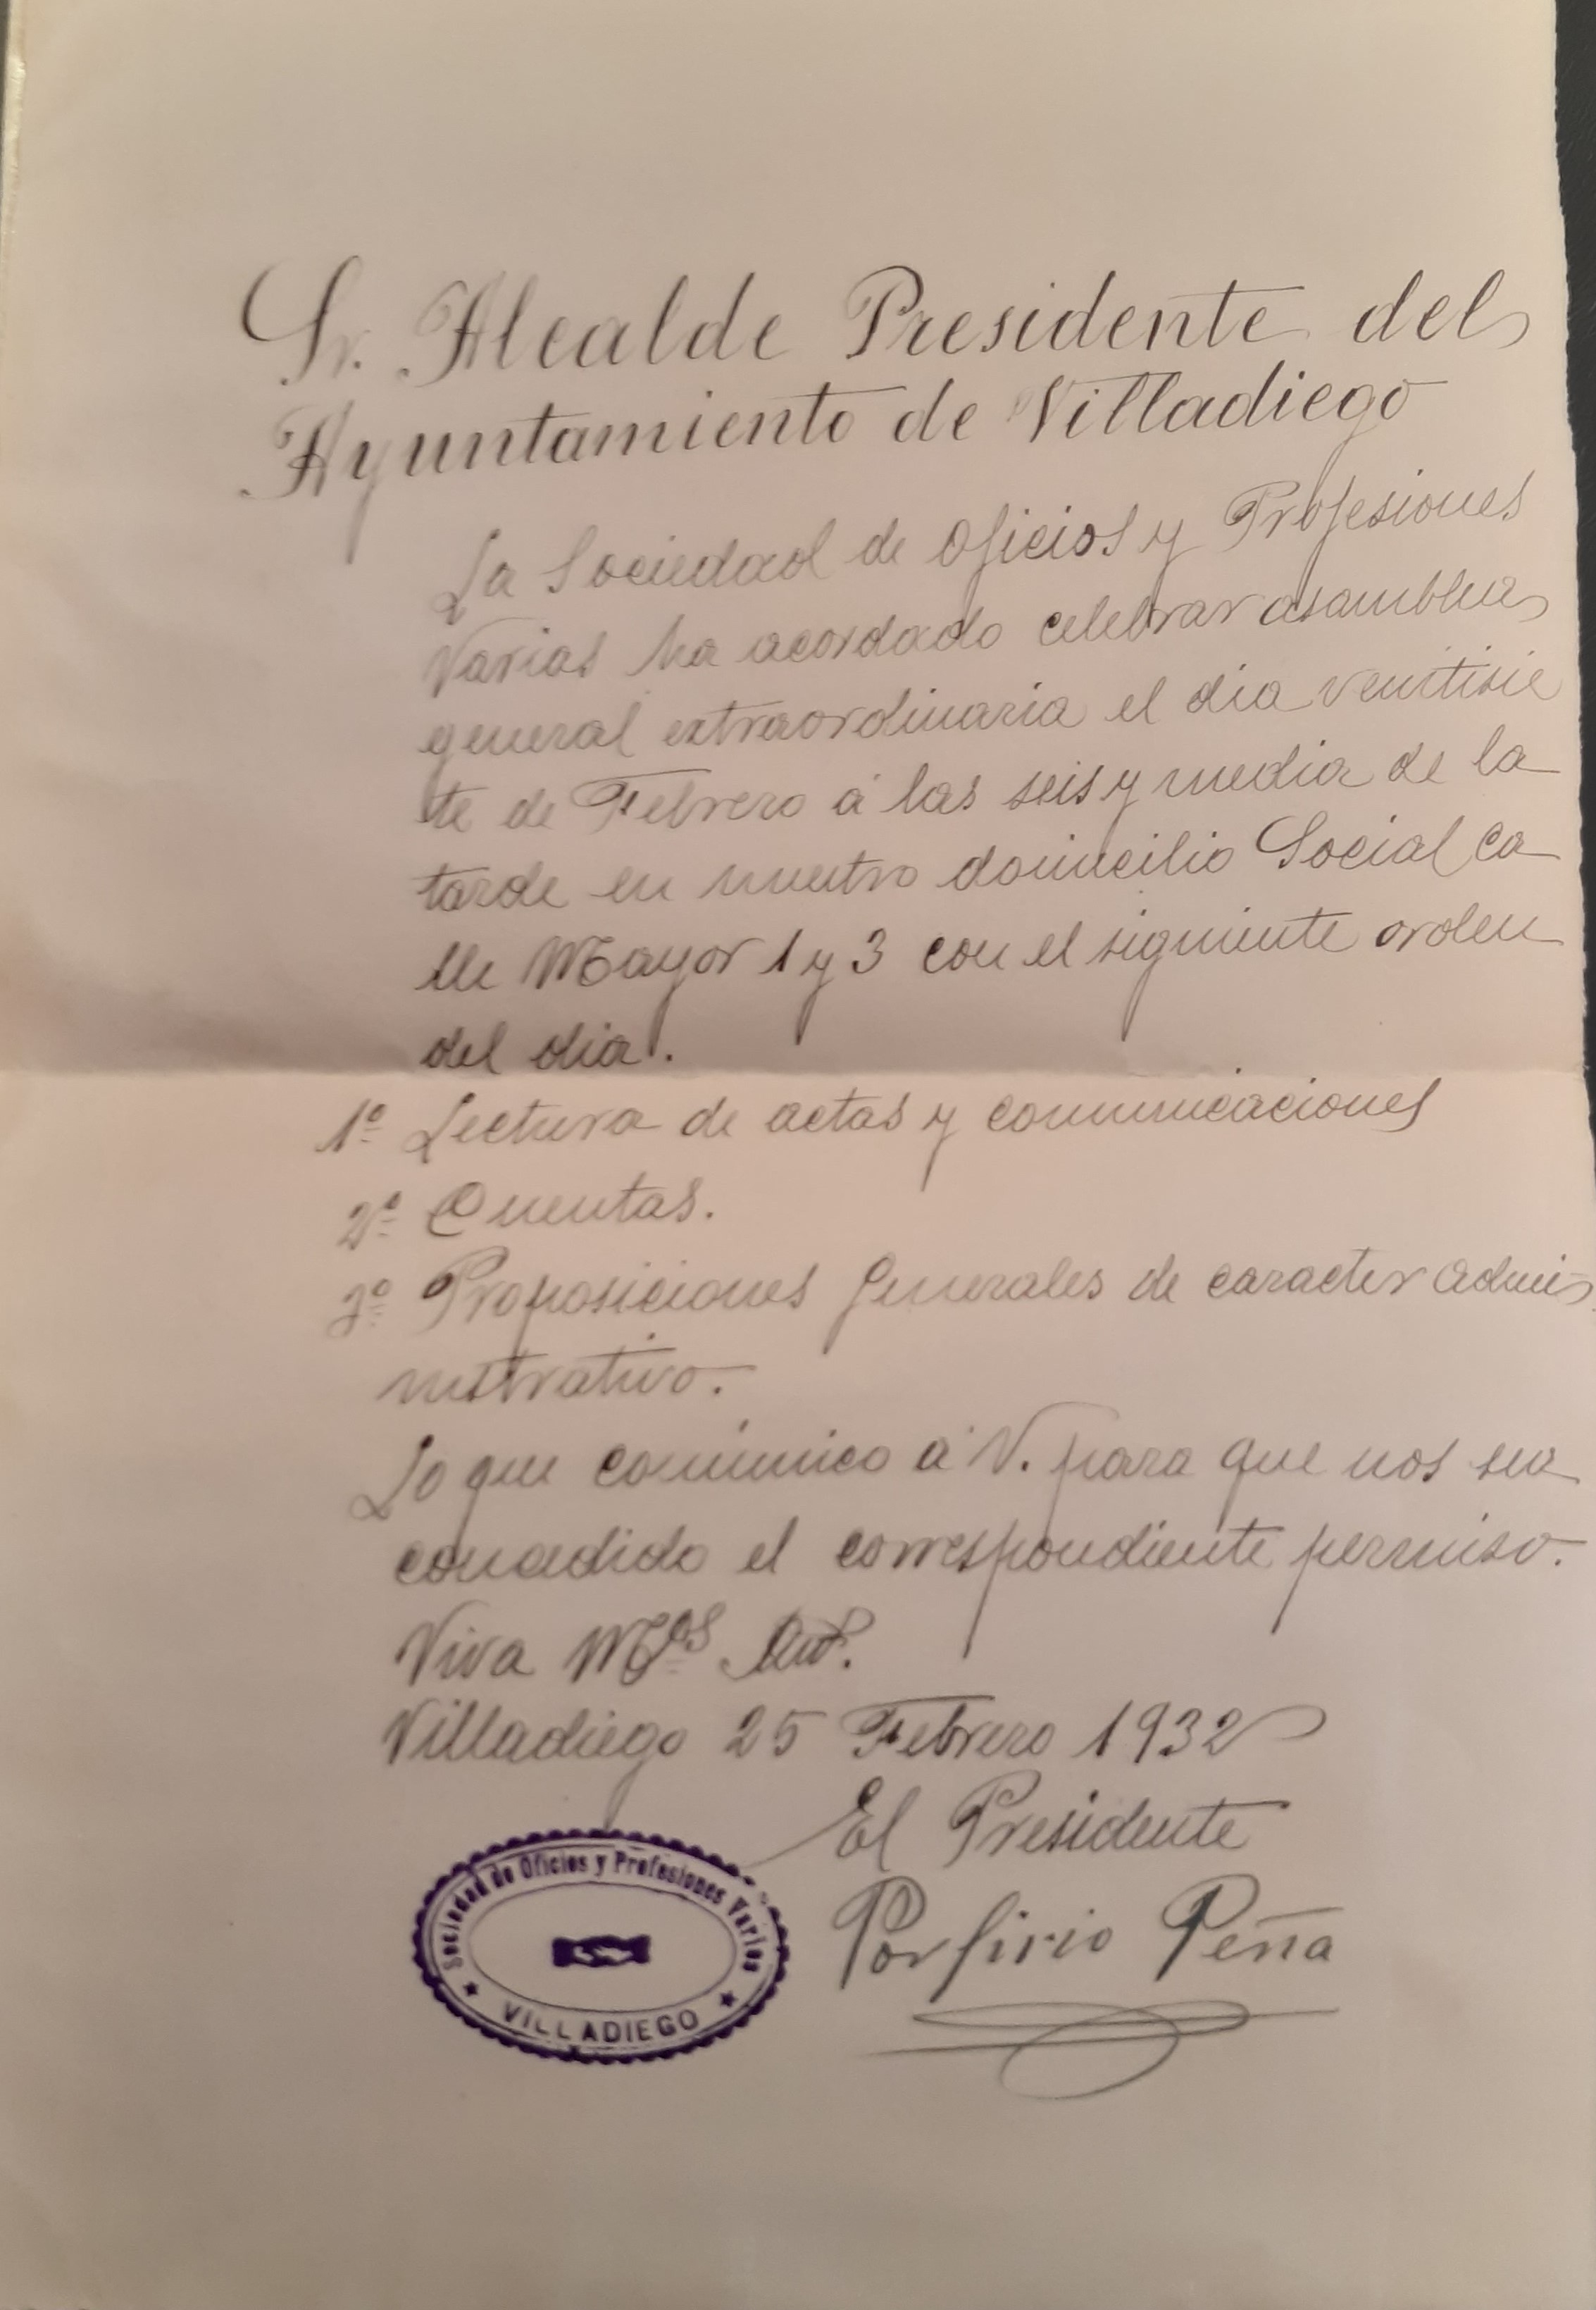 Sr. Alcalde Presidente del
Ayuntamiento de Villadiego
La Sociedad de Oficios y Profesiones
Varias ha acordado celebrar asamblea
general extraordinaria el dia venitisie
te de Febrero á las seis y media de la
tarde en nuestro domicilio Social ca
lle Mayor 1 y 3 con el siguiente orden
del dia.
1º Lectura de actas y comunicaciones
2º Cuentas.
3º Proposiciones Generales de caracter admi
nistrativo.
Lo que comunico á V. para que nos sea
concedido el correspondiente permiso.
Viva Mºs
Villadiego 25 Febrero 1932
El Presidente
Porfirio Peña
Sociedad de Oficios y Profesiones Varios
VILLADIEGO